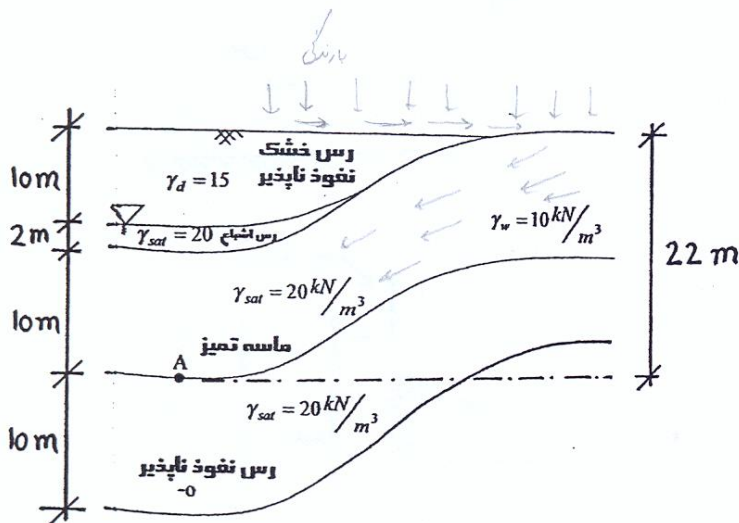 بارندگی
10m
رس خشک
نفوذ ناپذیر
γ_d = 15
2m
γ_sat = 20 رس اشباع
γ_w = 10 kN/m³
22 m
10m
γ_sat = 20 kN/m³
ماسه تمیز
A
γ_sat = 20 kN/m³
10m
رس نفوذ ناپذیر
-0